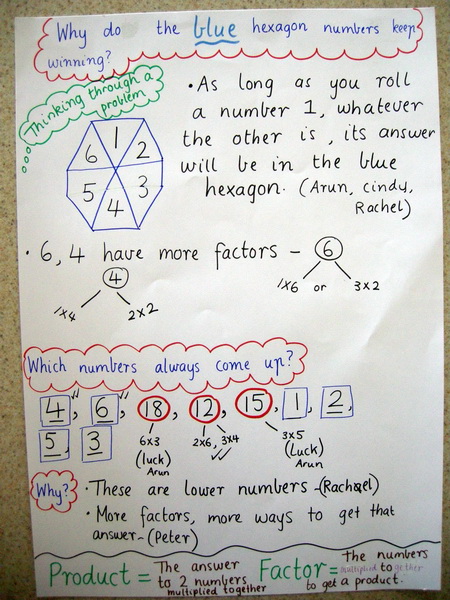 Why do the blue hexagon numbers keep
winning?
Thinking through a
problem
1
6 2
5 3
4
• As long as you roll
a number 1, whatever
the other is, its answer
will be in the blue
hexagon. (Arun, cindy,
Rachel)
• 6, 4 have more factors - 6
4
1x6 or 3x2
1x4 2x2
Which numbers always come up?
4, 6, 18, 12, 15, 1, 2,
5, 3
6x3 2x6, 3x4 3x5
(luck) (Luck)
Arun Arun
Why?
• These are lower numbers - (Rachael)
• More factors, more ways to get that
answer - (Peter)
Product = The answer
to 2 numbers
multiplied together
Factor = the numbers
multiplied together
to get a product.